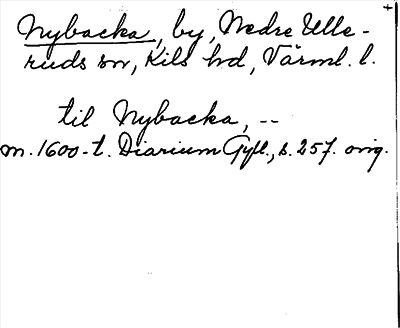 Nybacka, by, Nedre Ulle-
ruds sn, Kils hd, Värml. l.
til Nybacka, --
m. 1600-t. Diarium Gyll., s. 257. orig.